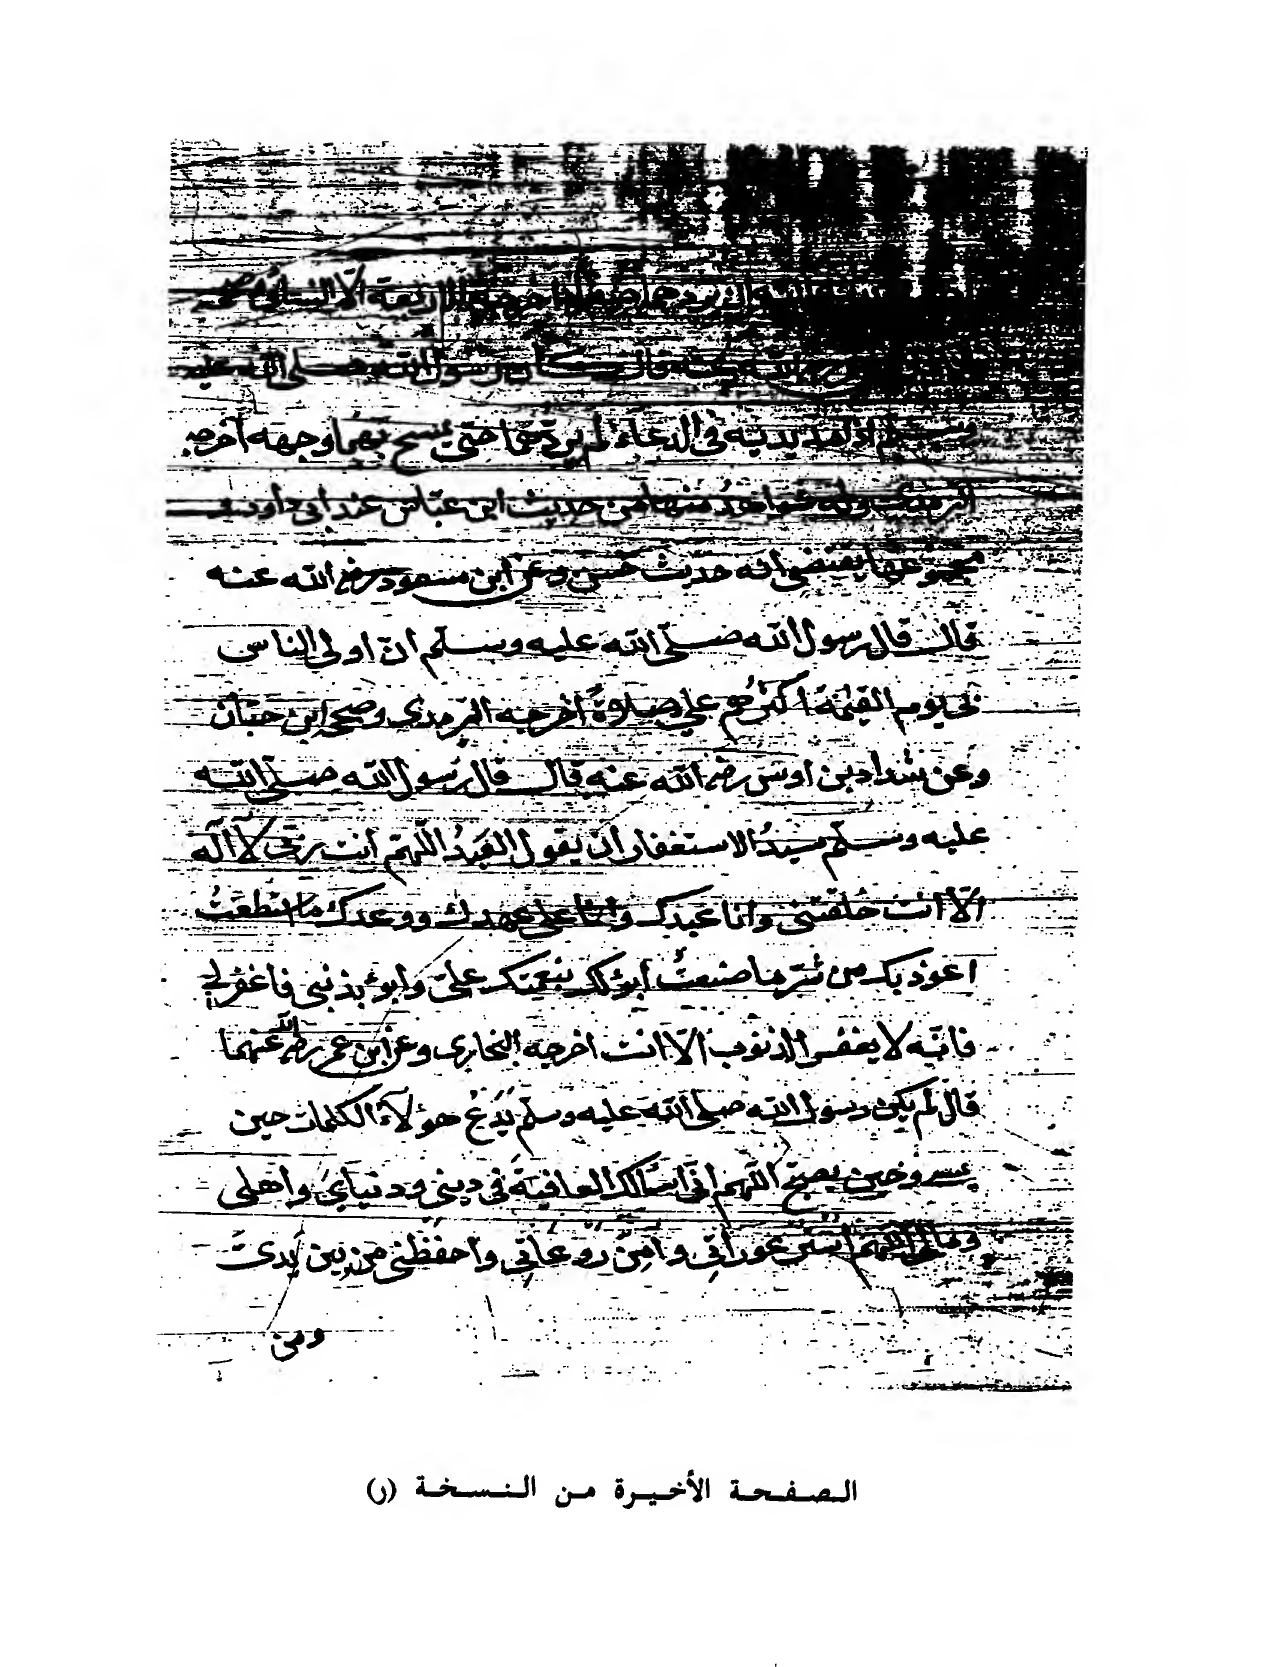 اليه ان يردهما صفرا اخرجه الاربعة الا النسائي وصححه
قال كان رسول الله صلى الله عليه
وسلم اذا مد يديه في الدعاء لم يردهما حتى يمسح بهما وجهه اخرجه
الترمذي وله شواهد منها من حديث ابن عباس عند ابي داود و
مجموعها يقتضي انه حديث حسن وعن ابن مسعود رضي الله عنه
قال قال رسول الله صلى الله عليه وسلم ان اولى الناس
بي يوم القيمة اكثرهم علي صلاة اخرجه الترمذي وصححه ابن حبان
وعن شداد بن اوس رضي الله عنه قال قال رسول الله صلى الله
عليه وسلم سيد الاستغفار ان يقول العبد اللهم انت ربي لا اله
الا انت خلقتني وانا عبدك وانا على عهدك ووعدك ما استطعت
اعوذ بك من شر ما صنعت ابوء لك بنعمتك علي وابوء بذنبي فاغفر لي
فانه لا يغفر الذنوب الا انت اخرجه البخاري وعن ابن عمر رضي الله عنهما
قال لم يكن رسول الله صلى الله عليه وسلم يدع هؤلاء الكلمات حين
يمسي وحين يصبح اللهم اني اسالك العافية في ديني ودنياي واهلي
ومالي اللهم استر عوراتي وامن روعاتي واحفظني من بين يدي
ومن
الصفحة الأخيرة من النسخة (ر)